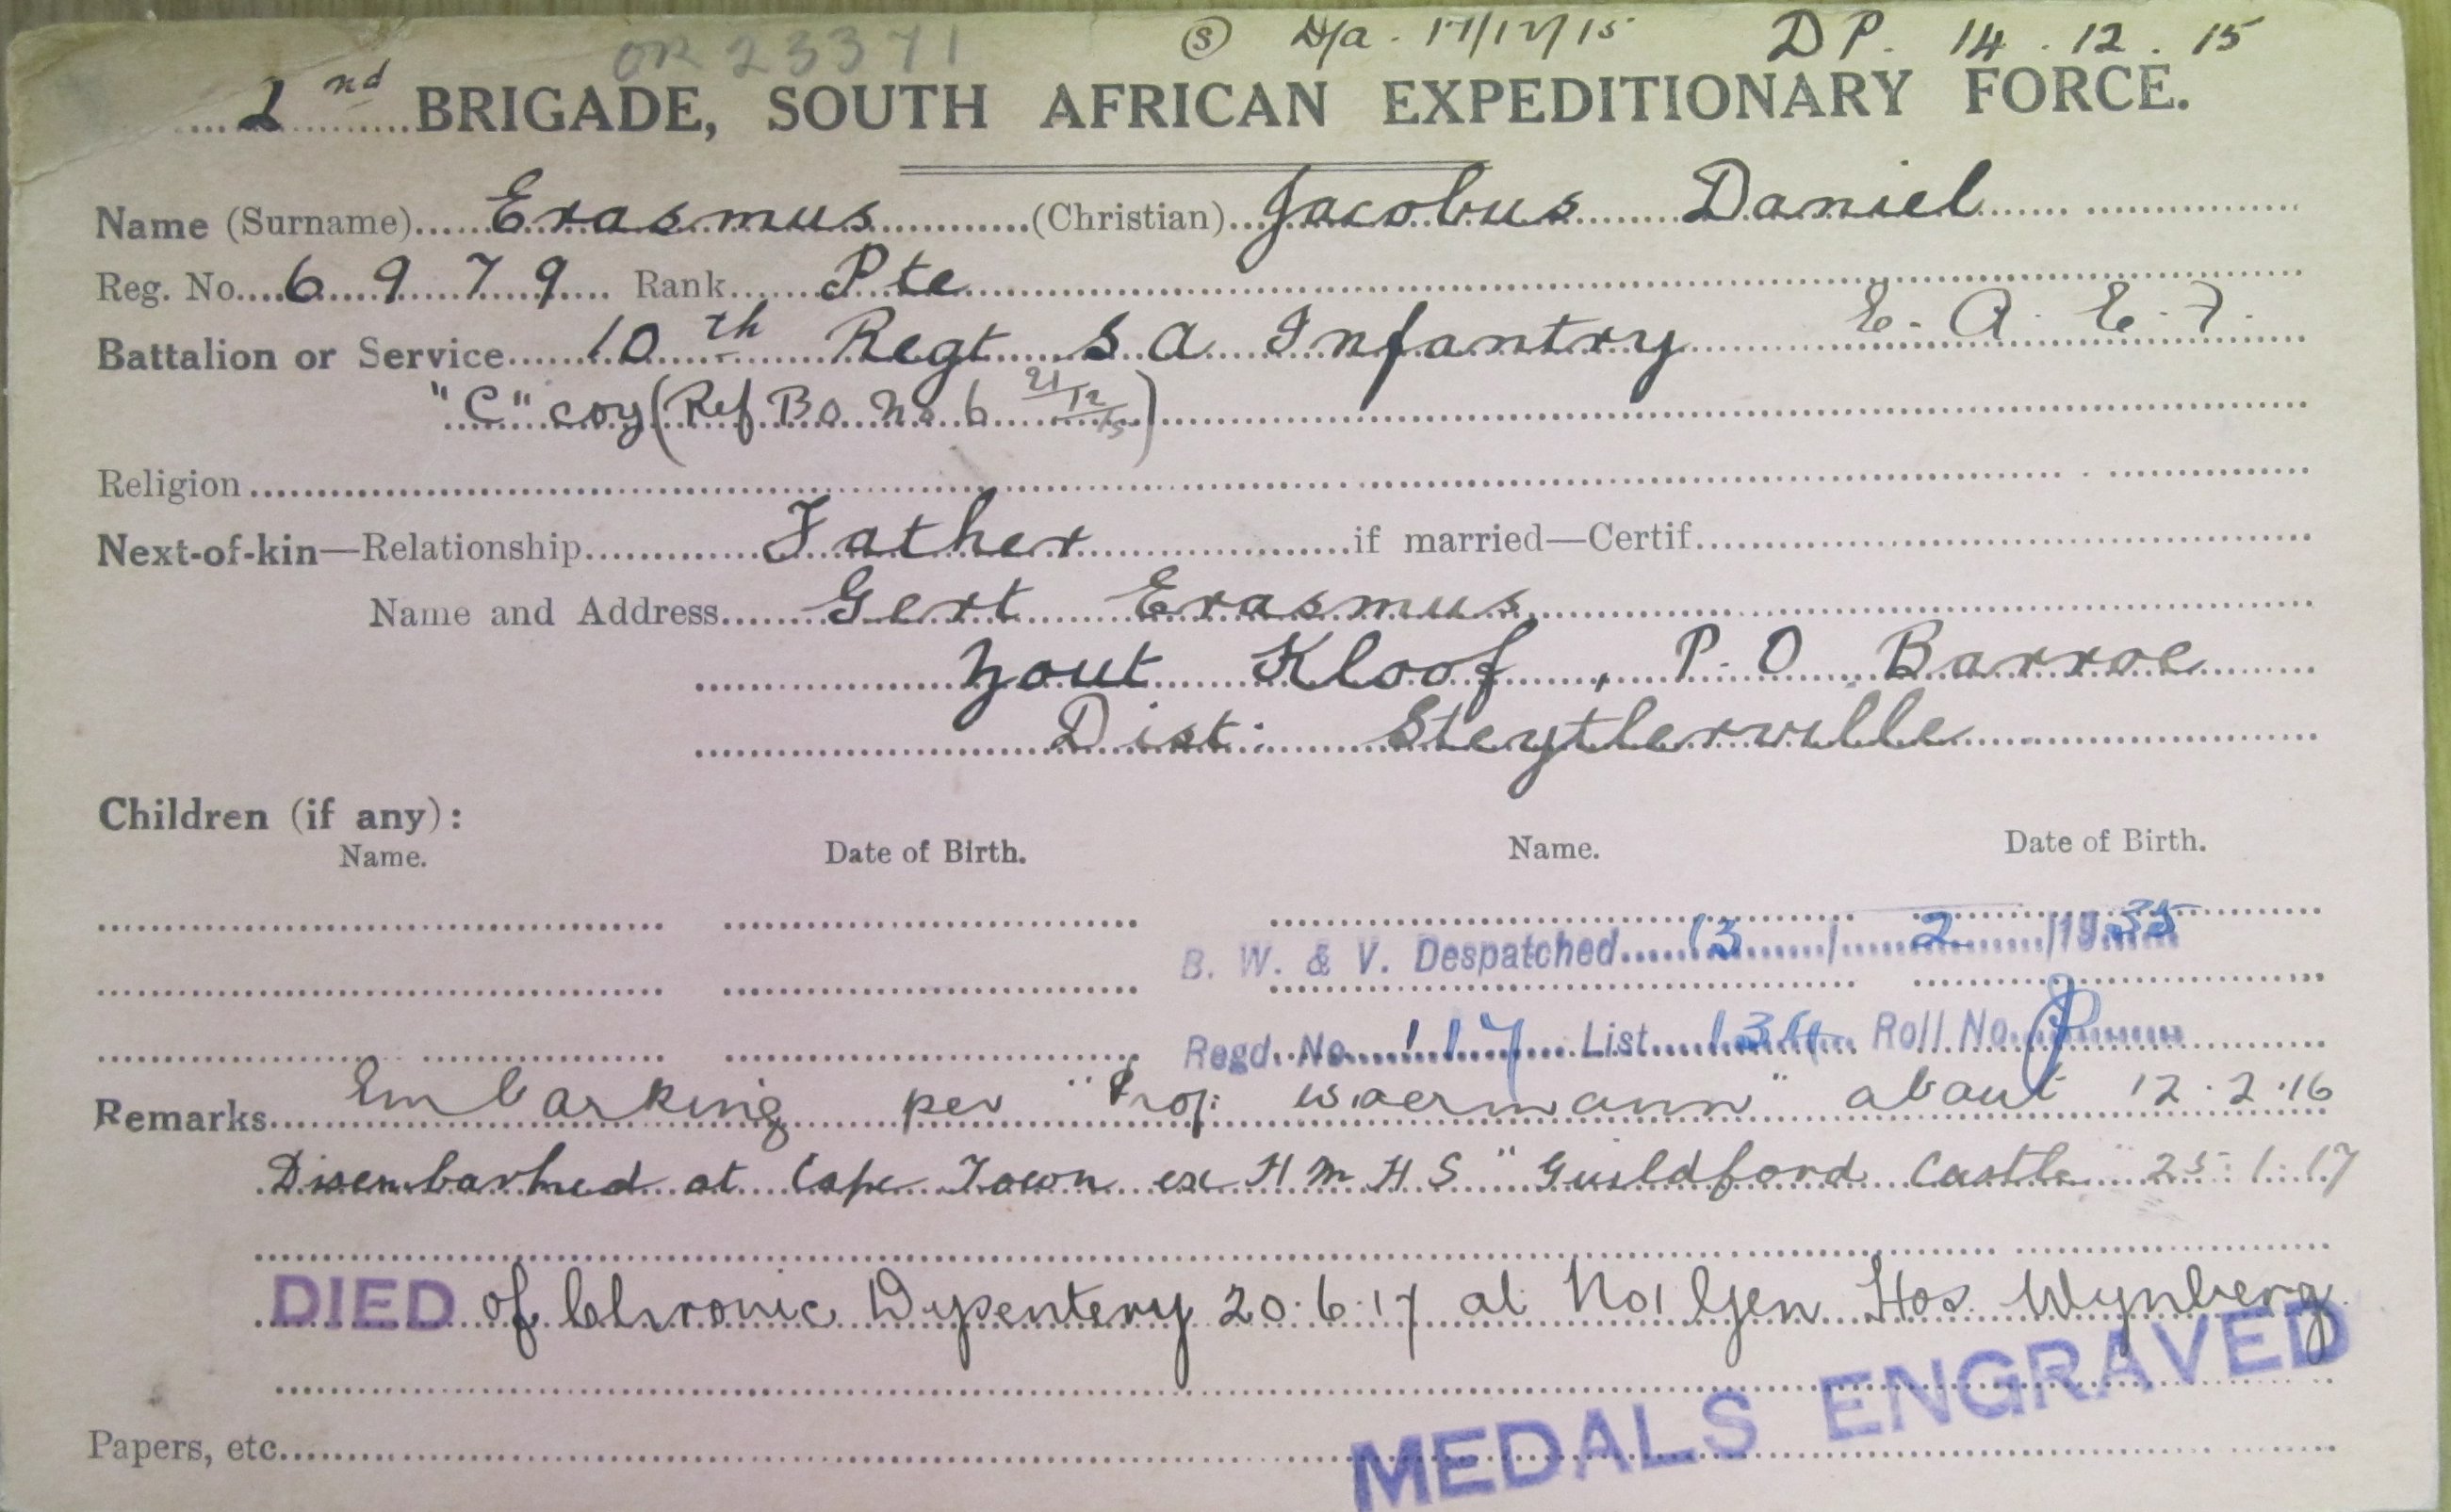 OR 23371 (S) D/a. 17/12/15 DP. 14.12.15
2nd BRIGADE, SOUTH AFRICAN EXPEDITIONARY FORCE.
Name (Surname) Erasmus (Christian) Jacobus Daniel
Reg. No. 6979 Rank Pte
Battalion or Service 10th Regt S A Infantry E. A. E. F.
"C" coy (Ref B.O. No. 6 21/12/15)
Religion
Next-of-kin—Relationship Father if married—Certif.
Name and Address Gert Erasmus
Zout Kloof, P.O. Barroe
Dist: Steytlerville
Children (if any):
Name. Date of Birth. Name. Date of Birth.
B. W. & V. Despatched 13/2/1935
Regd. No. 117 List 134 Roll No.
Remarks Embarking per "Prof: Woermann" about 12.2.16
Disembarked at Cape Town ex H M H S "Guildford Castle" 25:1:17
DIED of Chronic Dysentery 20.6.17 at No 1 Gen Hos. Wynberg
MEDALS ENGRAVED
Papers, etc.